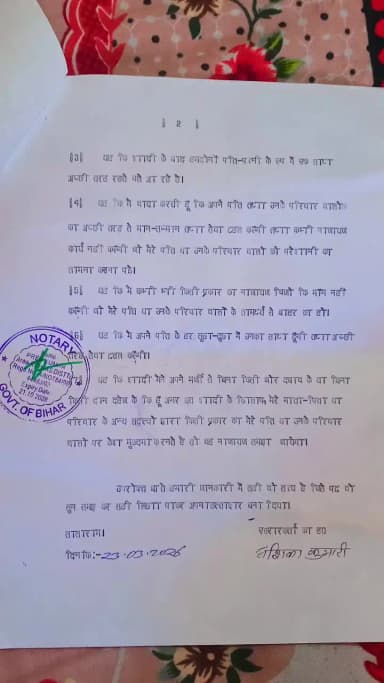 [ 2 ]
[3] यह कि शादी के बाद हमदोनों पति-पत्नी के रूप में एक साथ
अच्छी तरह रहते चले आ रहे है।
[4] यह कि मैं वादा करती हूं कि अपने पति तथा उनके परिवार वालों
का अच्छी तरह से मान-सम्मान तथा सेवा टहल करूंगी तथा कभी नाजायज
कार्य नहीं करूंगी जो मेरे पति या उनके परिवार वालों को परेशानी का
सामना करना पड़े।
[5] यह कि मैं कभी भी किसी प्रकार का नाजायज चिजों कि मांग नहीं
करूंगी जो मेरे पति या उनके परिवार वालों के सामर्थ्य से बाहर का हो।
[6] यह कि मैं अपने पति के हर सुख-दुख में उनका साथ दूंगी तथा अच्छी
तरह सेवा टहल करूंगी।
यह कि शादी मैंने अपने मर्जी से बिना किसी जोर दवाव के या बिना
किसी दान दहेज के कि हूं अगर इस शादी के खिलाफ मेरे माता-पिता या
परिवार के अन्य सदस्यों द्वारा किसी प्रकार का मेरे पति या उनके परिवार
वालों पर केश मुकदमा करते है तो वह नाजायज समझा जायेगा।
उपरोक्त बातें हमारी जानकारी में सही वो सत्य है जिसे पढ़ वो
सुन समझ कर सही लिखा पाकर अपना हस्ताक्षर बना दिया।
सासाराम।
शपथकर्ता का ह0
दिनांक:-23.03.2026
NOTARY
Regd. No.
Expiry Date
GOVT. OF BIHAR